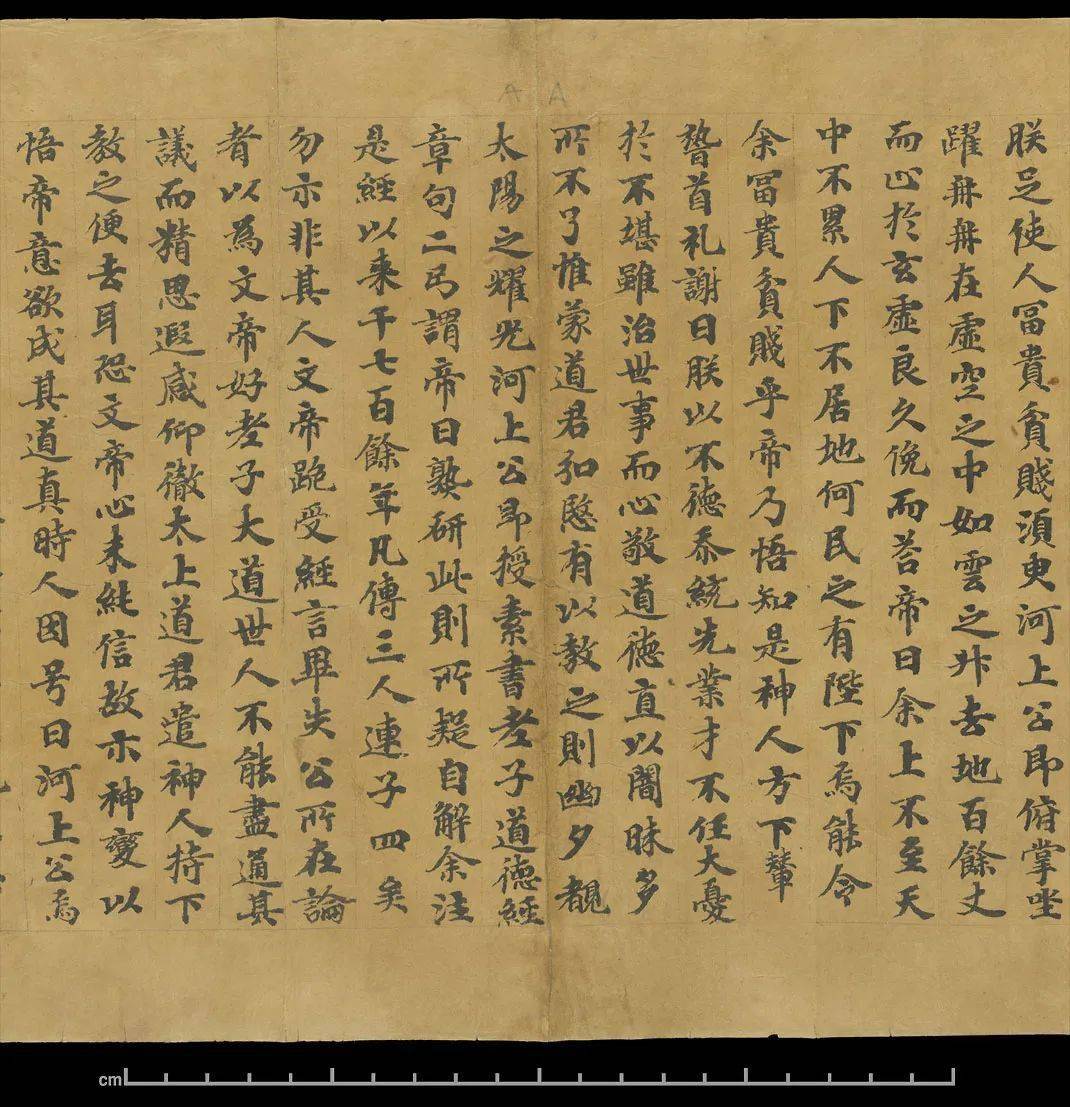 朕足使人冨貴貧賤湏臾河上公即俯掌㘴
躍冉冉在虛空之中如雲之升去地百餘丈
而止於玄虛良久俛而荅帝曰余上不至天
中不累人下不居地何民之有陛下焉能令
余冨貴貧賤乎帝乃悟知是神人方下輦
稽首礼謝曰朕以不德忝統先業才不任大憂
於不堪雖治世事而心敬道德直以闇昧多
所不了惟蒙道君弘愍有以教之則幽夕覩
太陽之耀光河上公即授素書老子道德經
章句二弓謂帝曰熟研此則所疑自解余注
是經以来千七百餘年凡傳三人連子四矣
勿示非其人文帝跪受經言畢失公所在論
者以為文帝好老子大道世人不能盡通其
議而精思遐感仰徹太上道君遣神人持下
教之便去耳恐文帝心未純信故示神變以
悟帝意欲成其道真時人因号曰河上公焉
A A
cm